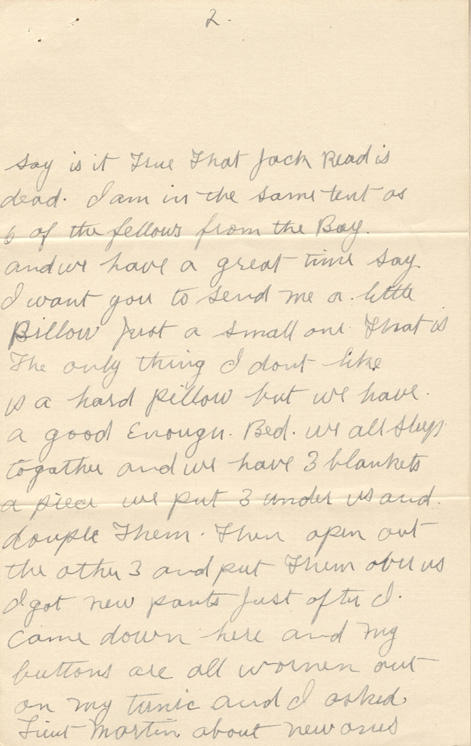 2.
Say is it True That Jack Read is
dead. I am in the same tent as
6 of the fellows from the Bay.
and we have a great time say.
I want you to send me a little
Pillow Just a small one That is
The only thing I dont like
is a hard pillow but we have.
a good Enough. Bed. we all sleep
togather and we have 3 blankets
a piece we put 3 under us and.
douple Them. Then open out
the other 3 and put Them over us
I got new pants Just after I.
came down here and my
buttons are all wornen out
on my tunic and I asked.
Lieut Martin about new ones